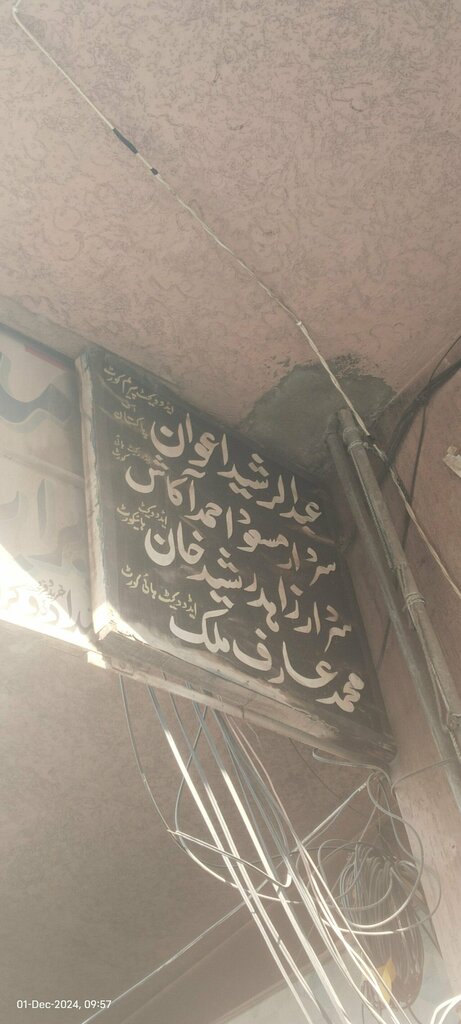 عبدالرشید اعوان ایڈووکیٹ سپریم کورٹ آف پاکستان
سردار مسعود احمد آکاش ایڈووکیٹ ہائی کورٹ
سردار زاہد رشید خان ایڈووکیٹ ہائیکورٹ
محمد عارف ملک ایڈووکیٹ ہائی کورٹ
01-Dec-2024, 09:57